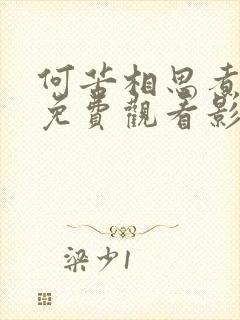 何苦相思煮
免費觀看影
梁少1